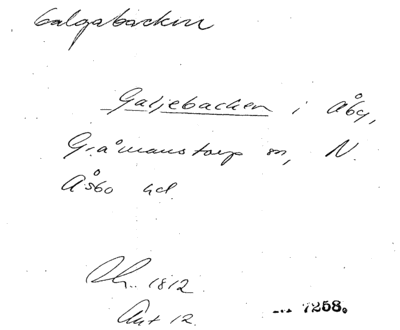 Galgabacken
Galjebacken i Åby,
Gråmanstorp sn, N.
Åsbo hd.
1812.
Akt 12.
7258.